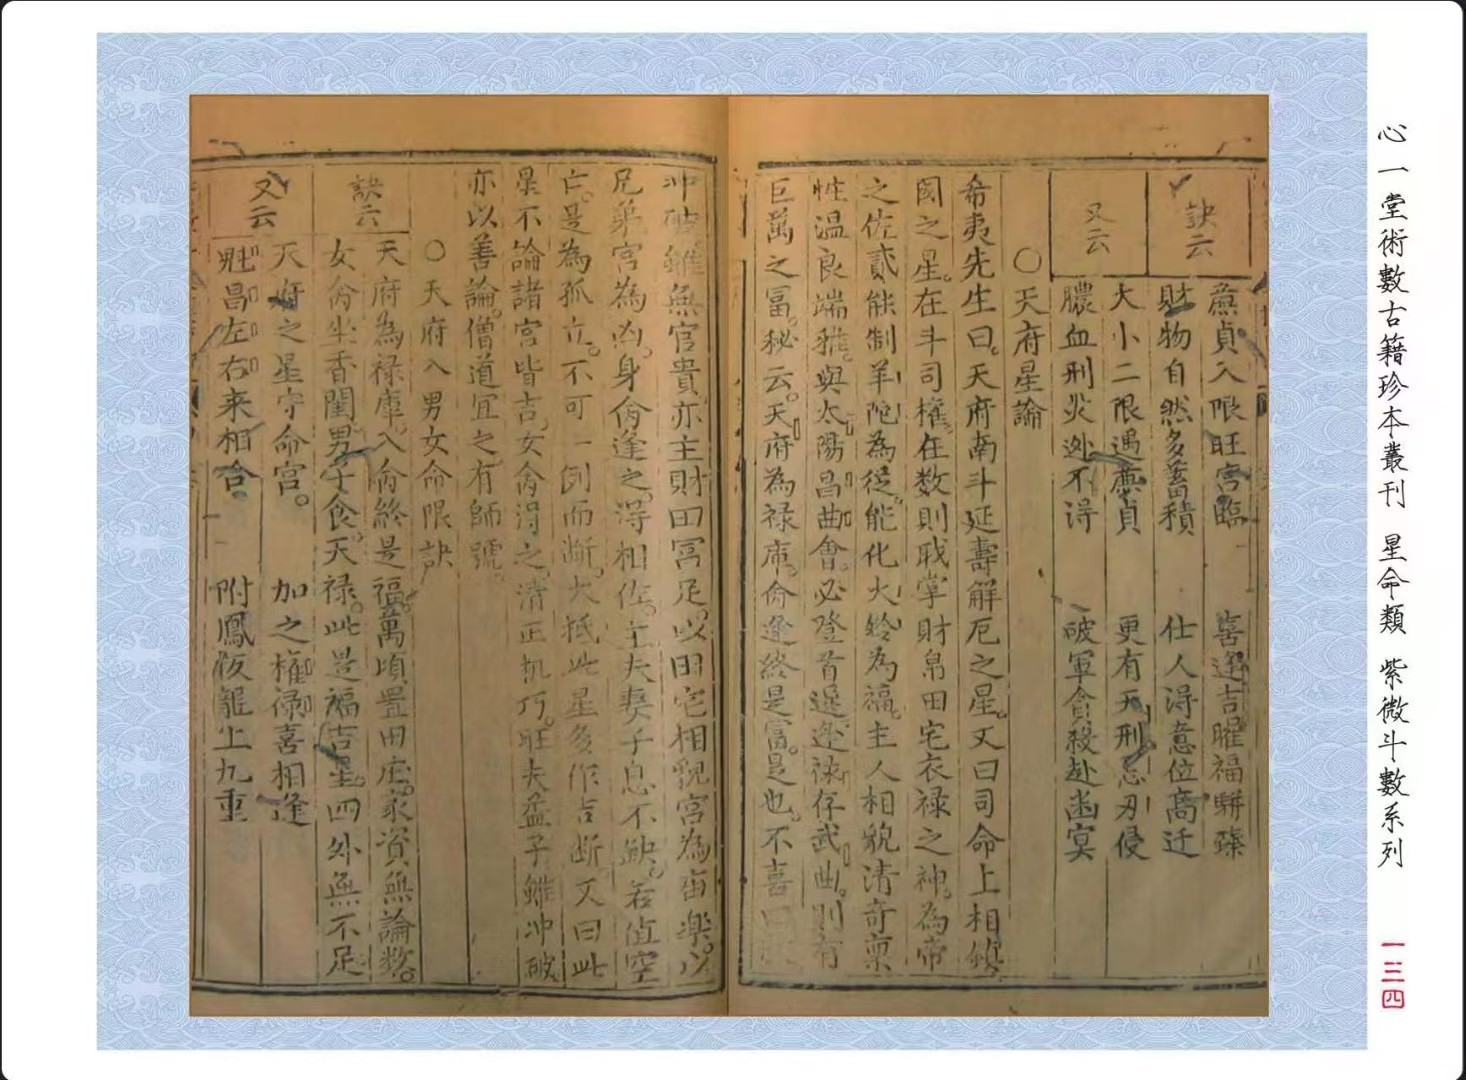 心一堂術數古籍珍本叢刊 星命類 紫微斗數系列
一三四
訣云
廉貞入限旺宮臨 喜逢吉曜福駢臻
財物自然多蓄積 仕人得意位高迁
又云
大小二限遇廉貞 更有天刑忌刃侵
膿血刑災迯不得 破軍貪殺赴幽冥
○天府星論
希夷先生曰。天府南斗延壽解厄之星。又曰司命上相鎮
國之星。在斗司權。在数則职掌財帛田宅衣禄之神。為帝
之佐貳能制羊陀為從。能化火鈴為福。主人相貌清奇稟
性温良端雅。與太陽昌曲會。必登首選。逢禄存武曲。則有
巨萬之冨。秘云。天府為禄庫。命逢終是富。是也。不喜四
冲破雖無官貴亦主財田冨足。以田宅相貌宮為庙樂。以
兄弟宮為凶。身命逢之得相佐。主夫妻子息不缺。若值空
亡。是為孤立。不可一例而断。大抵此星多作吉断。又曰此
星不論諸宮皆吉。女命得之。清正机巧。旺夫益子雖冲破
亦以善論。僧道宜之有師號。
○天府入男女命限訣
訣云
天府為禄庫。入命終是福。萬頃置田庄。家資無論数。
女命坐香閨男子食天禄。此是福吉星。四外無不足
又云
天府之星守命宮。 加之權禄喜相逢
魁昌左右来相合。 附鳳攀龍上九重